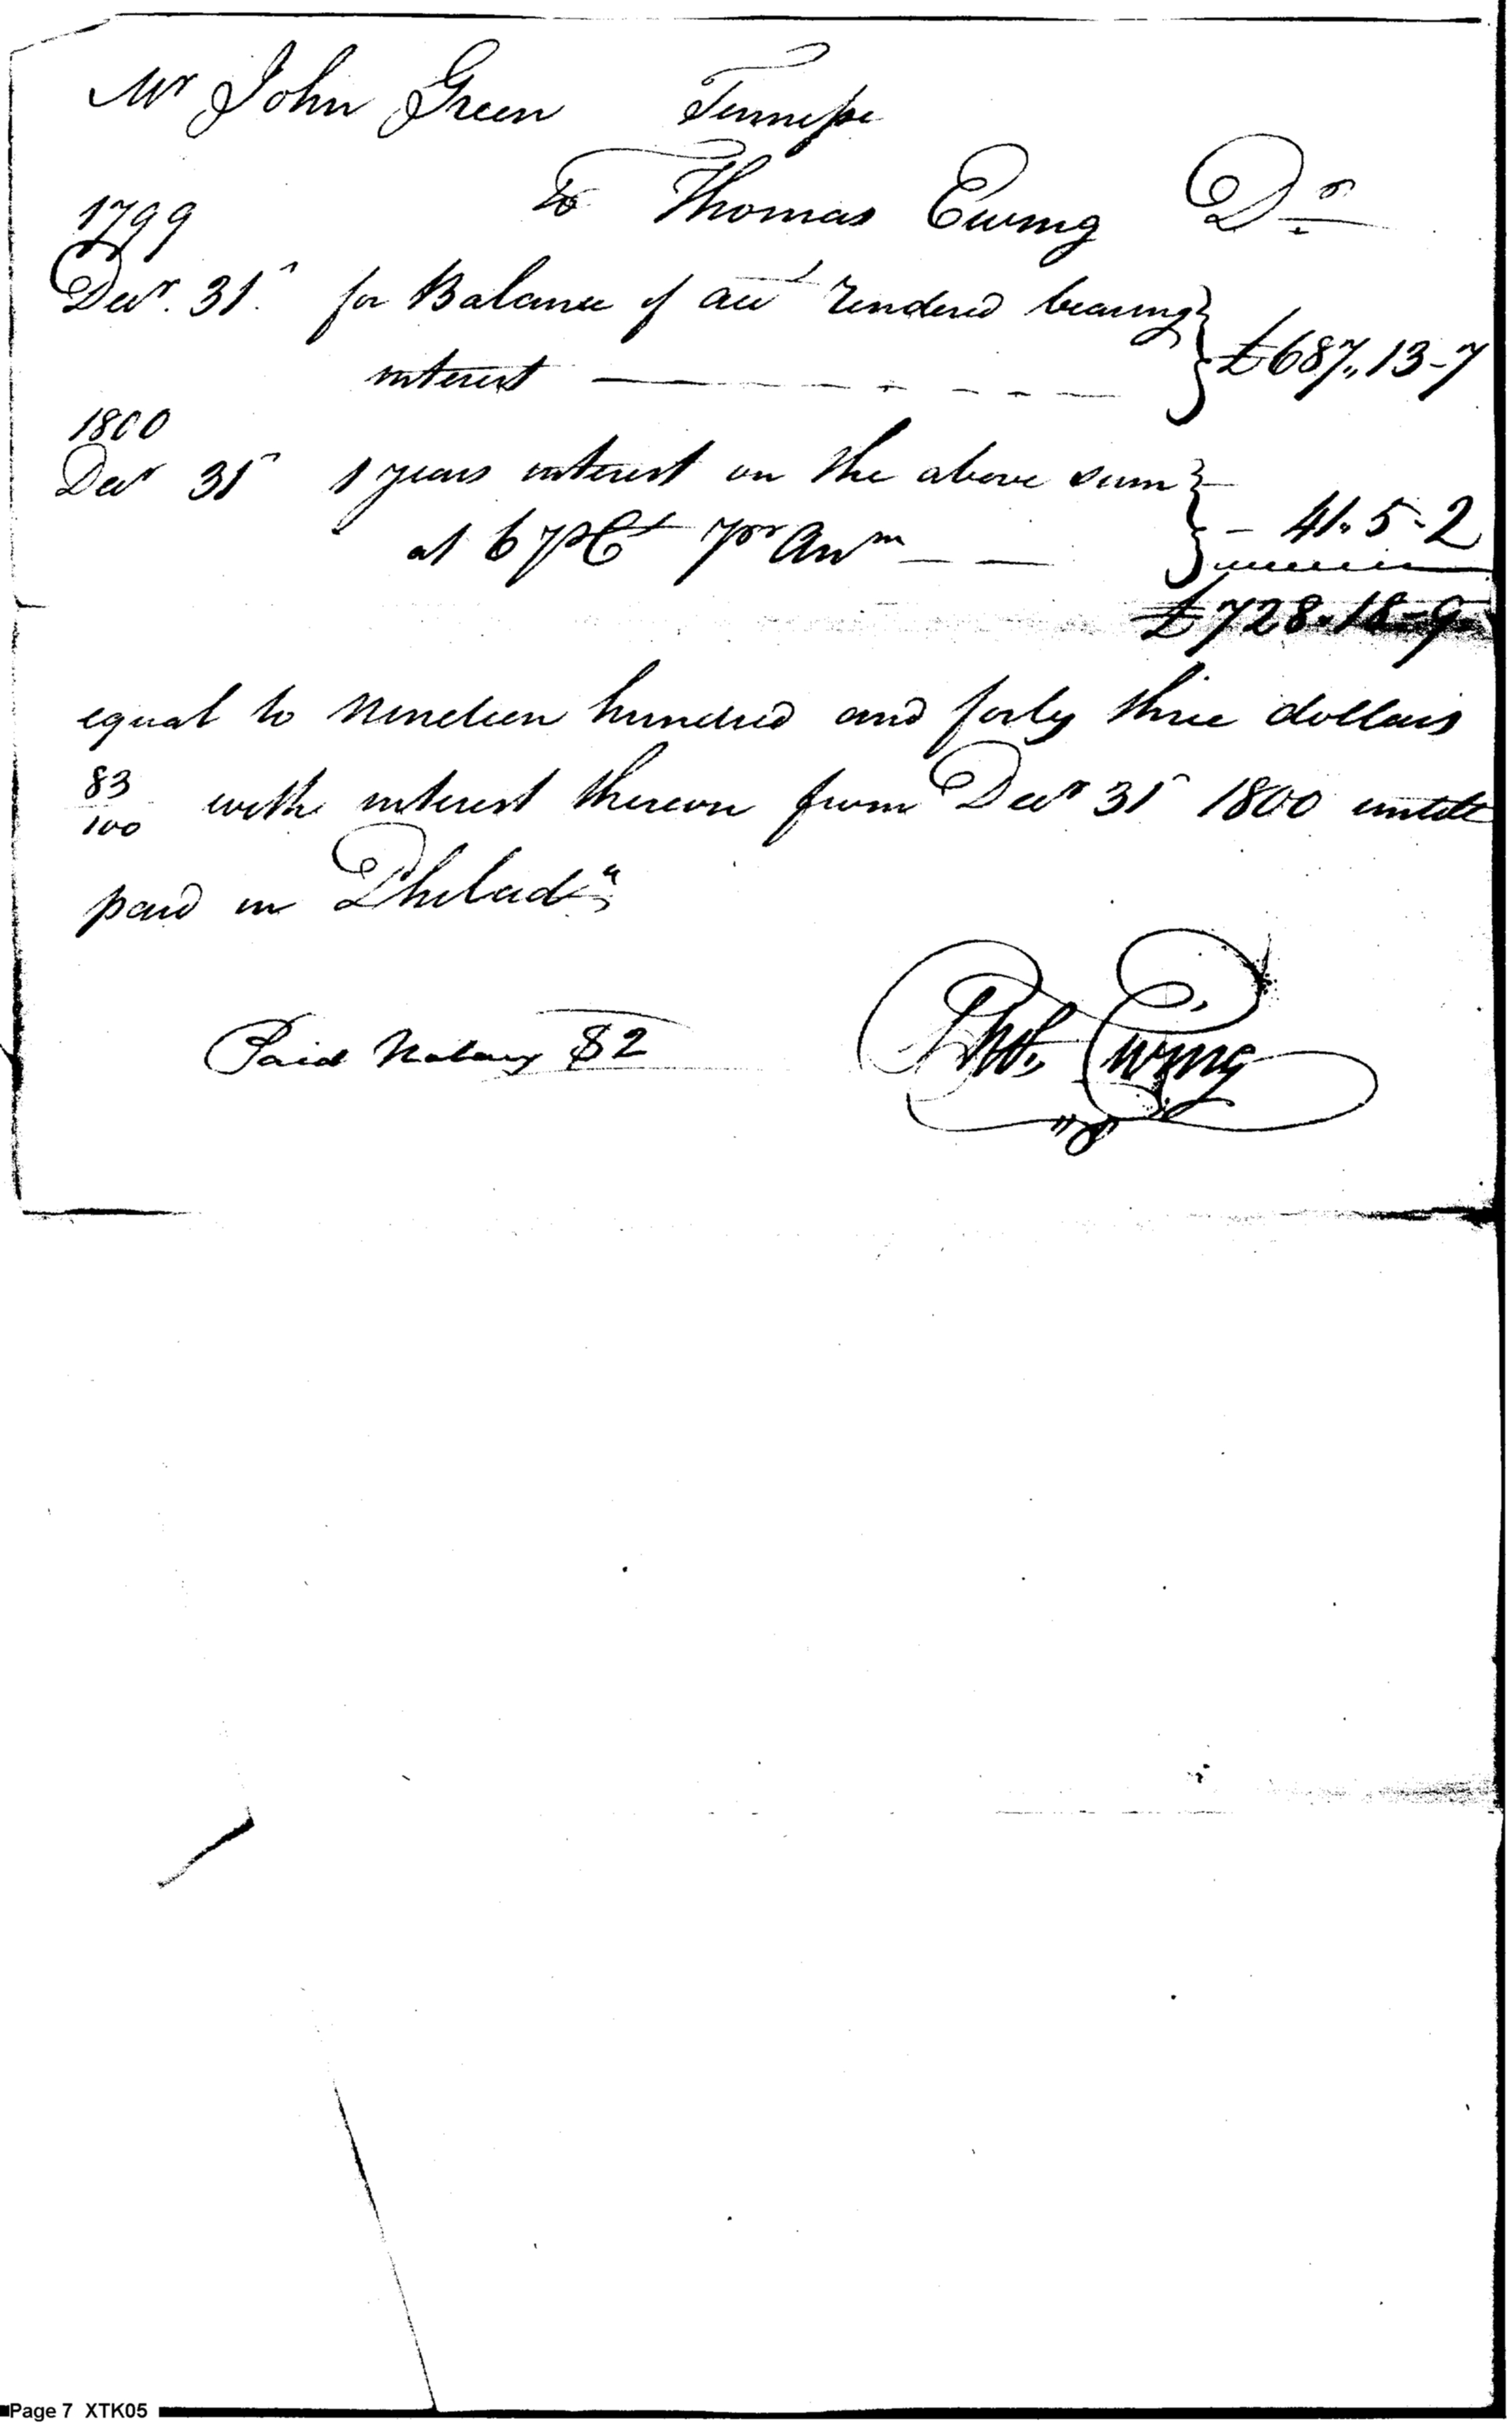 Mr John Green Tennessee
To Thomas Ewing Dr
1799
Decr. 31 for Balance of acct rendered bearing } £687,,13-7
interest
1800
Decr 31 1 years interest on the above sum } - 41.. 5 - 2
at 6 pCt pr Anm
£728.18=9
equal to Nineteen hundred and forty three dollars
83/100 with interest thereon from Decr 31 1800 untill
paid in Philada
Paid Notary $2
Thos. Ewing
Page 7 XTK05